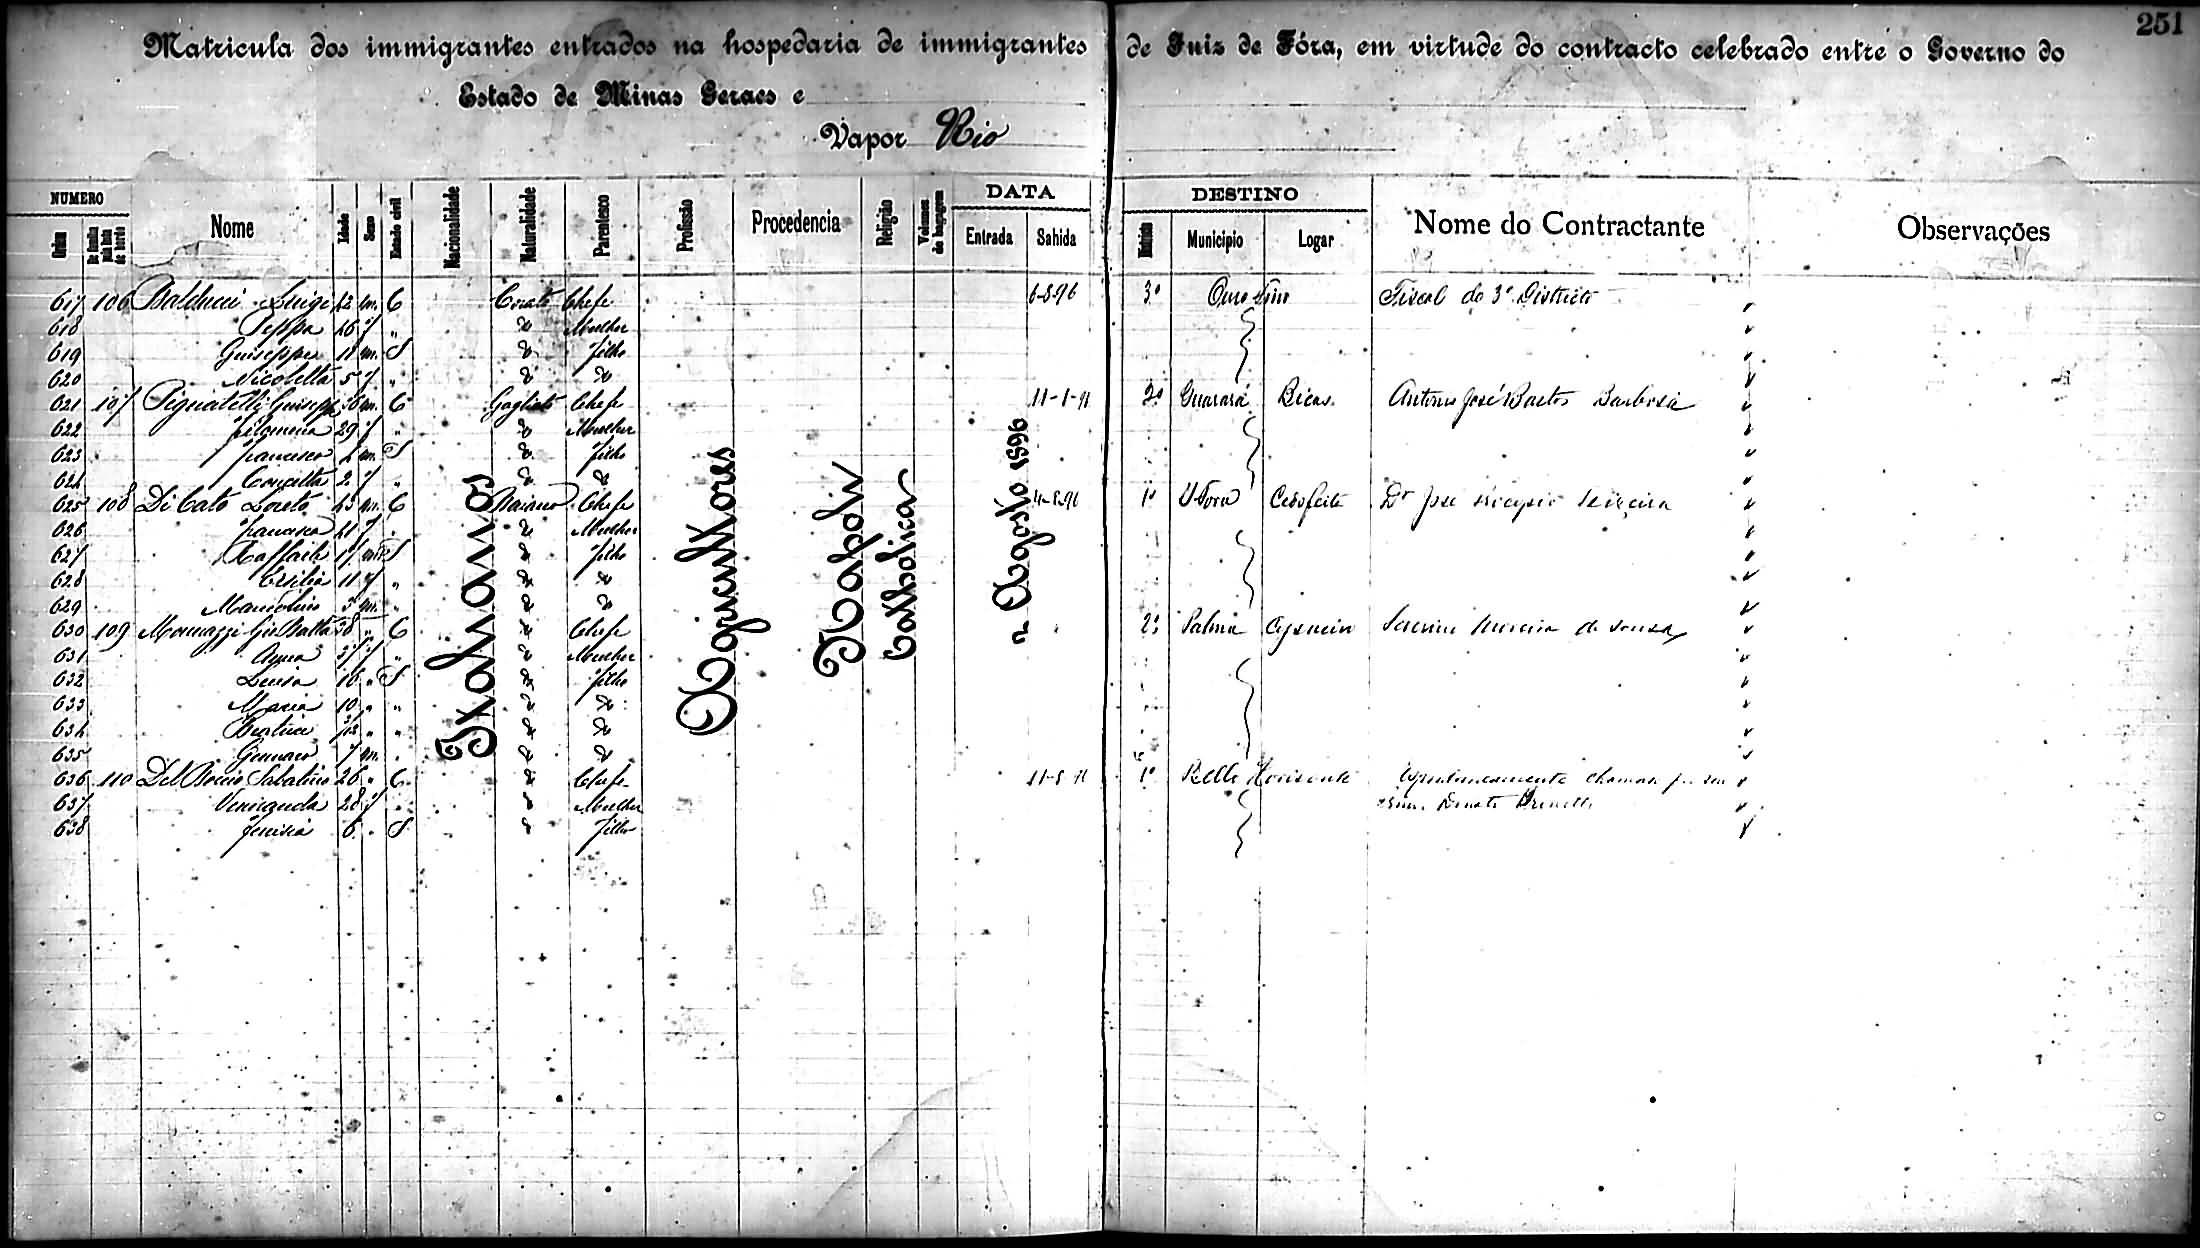 251
Matricula dos immigrantes entrados na hospedaria de immigrantes de Juiz de Fóra, em virtude do contracto celebrado entre o Governo do
Estado de Minas Geraes e
Vapor Rio
NUMERO DATA DESTINO
Ordem De familia pela lista de bordo Nome Idade Sexo Estado civil Nacionalidade Naturalidade Parentesco Profissão Procedencia Religião Volumes de bagagem Entrada Sahida Districto Municipio Logar Nome do Contractante Observações
Italianos
Agricultores
Napoli
Catholica
2 Agosto 1896
617 106 Balducci Luigi 42 m. C Corato Chefe 6-8-96 3º Ouro Fino Fiscal do 3º Districto
618 Peppa 46 f " " Mulher
619 Guiseppe 11 m. S " filho
620 Nicoletta 5 f " " "
621 107 Pignatelli Guisepe 36 m. C Gagliato Chefe 2º Guarará Bicas Antonio José Bastos Barbosa
622 filomena 29 f " " Mulher
623 francesco 4 m. S " filho
624 Concetta 2 f " " "
625 108 Di Cato Loreto 43 m. C Chefe 1º J. Fora Cedofeita Dr José
626 francesca 41 f " " Mulher
627 Raffaele 17 m. S " filho
628 Ersilia 11 f " " "
629 m. " " "
630 109 Gio Batta 38 " C " Chefe 2º Palma Cysneiro Moreira de Sousa
631 Anna 37 f " " Mulher
632 Luisa 16 " S " filho
633 Maria 10 " " " "
634 Beatrice " " " "
635 Gennaro 7 m. " " "
636 110 Del Boccio Sabatino 26 " C " Chefe 1º Bello Horisonte Espontaneamente
637 28 f " " Mulher Donato
638 6 " S " filho